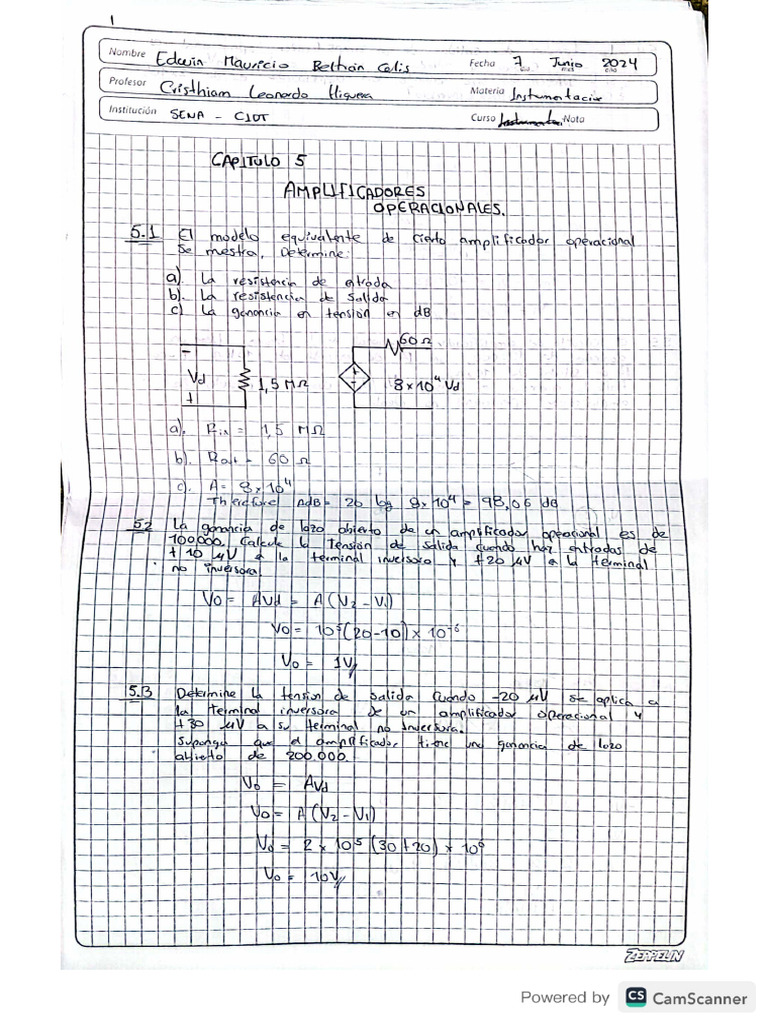 1
Nombre Edwin Mauricio Beltrán Celis Fecha 7 Junio 2024
Profesor Cristhiam Leonardo Higuera Materia Instrumentación
Institución SENA - CIDT Curso Nota
CAPITULO 5
AMPLIFICADORES
OPERACIONALES.
5.1 El modelo equivalente de cierto amplificador operacional
se mestra, Determine:
a). La resistencia de entrada
b). La resistencia de salida
c) La ganancia en tensión en dB
60 Ω
-
Vd 1,5 MΩ + - 8 x 10⁴ Vd
+
a). Rin = 1,5 MΩ
b). Rout = 60 Ω
c). A = 8 x 10⁴
Therefore AdB = 20 log 8 x 10⁴ = 98,06 dB
5.2 La ganancia de lazo abierto de un amplificador operacional es de
100,000. Calcule la Tensión de salida cuando hay entradas de
+ 10 µV a la terminal inversora y +20 µV a la terminal
no inversora.
Vo = AVd = A (V2 - V1)
Vo = 10⁵ (20-10) x 10⁻⁶
Vo = 1V
5.3 Determine la tension de salida cuando -20 µV se aplica a
la terminal inversora de un amplificador operacional y
+30 µV a su terminal no inversora.
Suponga que el amplificador tiene una ganancia de lazo
abierto de 200.000.
Vo = AVd
Vo = A (V2 - V1)
Vo = 2 x 10⁵ (30+20) x 10⁶
Vo = 10V
ZEPPELIN
Powered by CS CamScanner